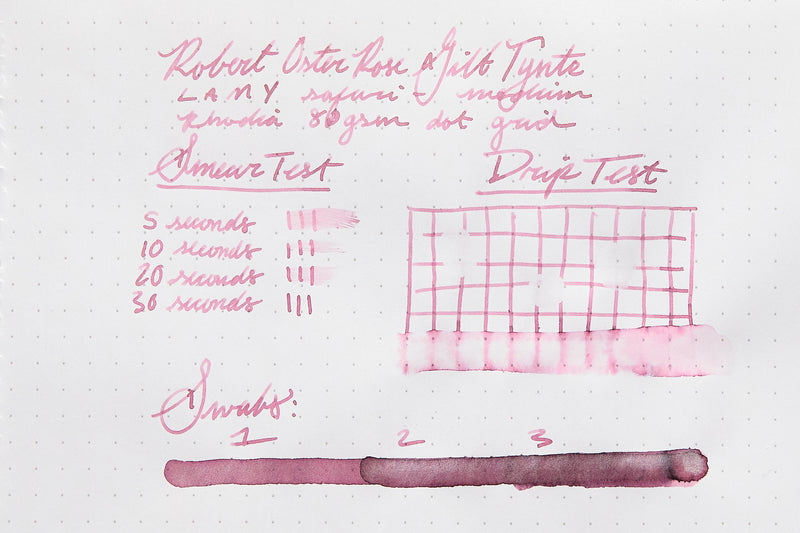 Robert Oster Rose Gilt Tynte
LAMY safari - medium
Rhodia 80gsm dot grid
Smear Test
Drip Test
5 seconds
10 seconds
20 seconds
30 seconds
Swabs:
1 2 3